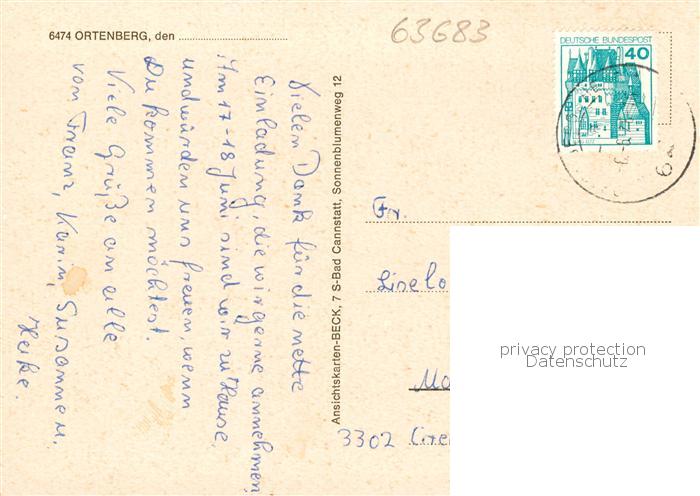 6474 ORTENBERG, den
63683
DEUTSCHE BUNDESPOST
40
Vielen Dank für die nette
Einladung, die wir gerne annehmen.
Am 17-18 Juni sind wir zu Hause
und würden uns freuen, wenn
Du kommen möchtest.
Viele Grüße an alle
von Franz, Karin, Susanne u.
Heike.
Ansichtskarten-BECK, 7 S-Bad Cannstatt, Sonnenblumenweg 12
Fr.
Liselo
Mo
3302
privacy protection
Datenschutz